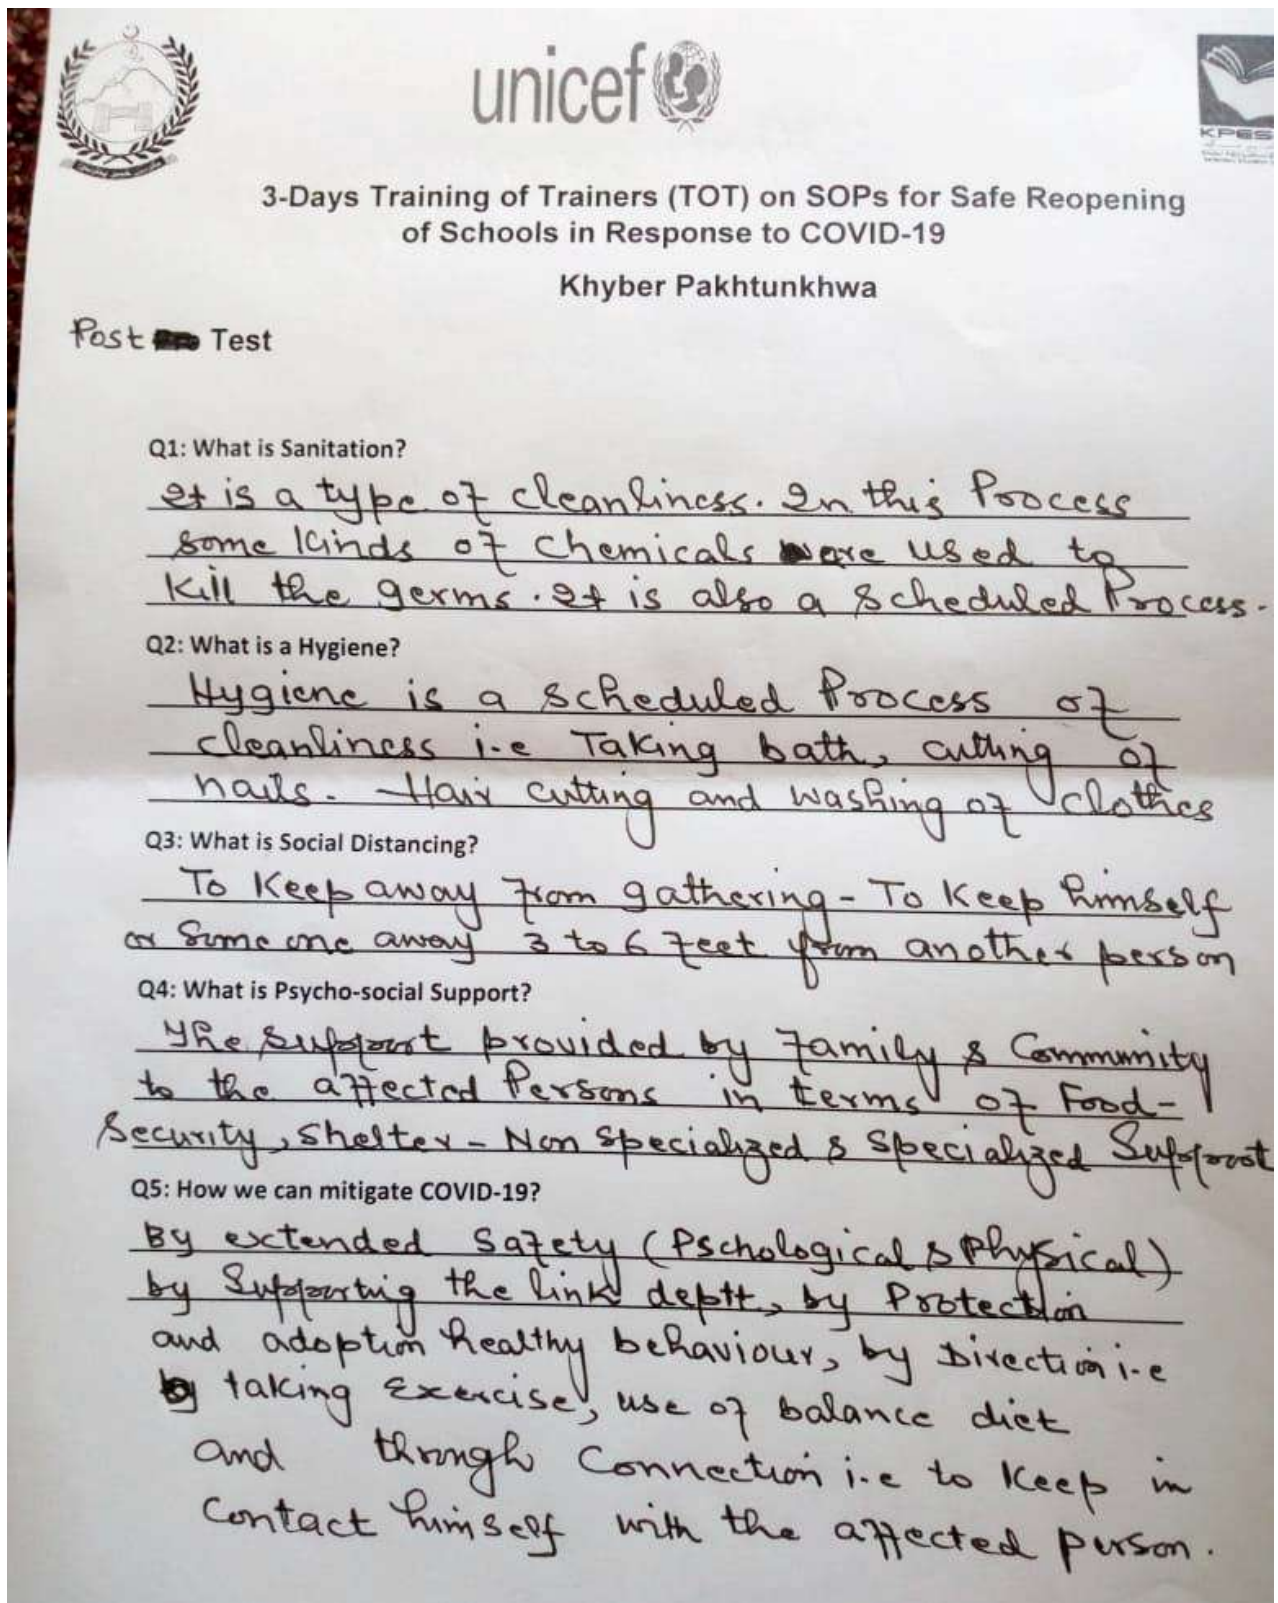 unicef
KPES
3-Days Training of Trainers (TOT) on SOPs for Safe Reopening
of Schools in Response to COVID-19
Khyber Pakhtunkhwa
Post Test
Q1: What is Sanitation?
It is a type of cleanliness. In this Process
some kinds of chemicals are used to
kill the germs. It is also a scheduled Process.
Q2: What is a Hygiene?
Hygiene is a scheduled Process of
cleanliness i.e Taking bath, cutting of
nails. Hair cutting and washing of clothes
Q3: What is Social Distancing?
To Keep away from gathering - To Keep himself
or Some one away 3 to 6 feet from another person
Q4: What is Psycho-social Support?
The support provided by family & Community
to the affected Persons in terms of Food-
Security, Shelter - Non Specialized & Specialized Support
Q5: How we can mitigate COVID-19?
By extended Safety (Pschological & Physical)
by Supporting the link deptt, by Protection
and adoption healthy behaviour, by Direction i-e
by taking Exercise, use of balance diet
and through Connection i.e to Keep in
Contact himself with the affected person.